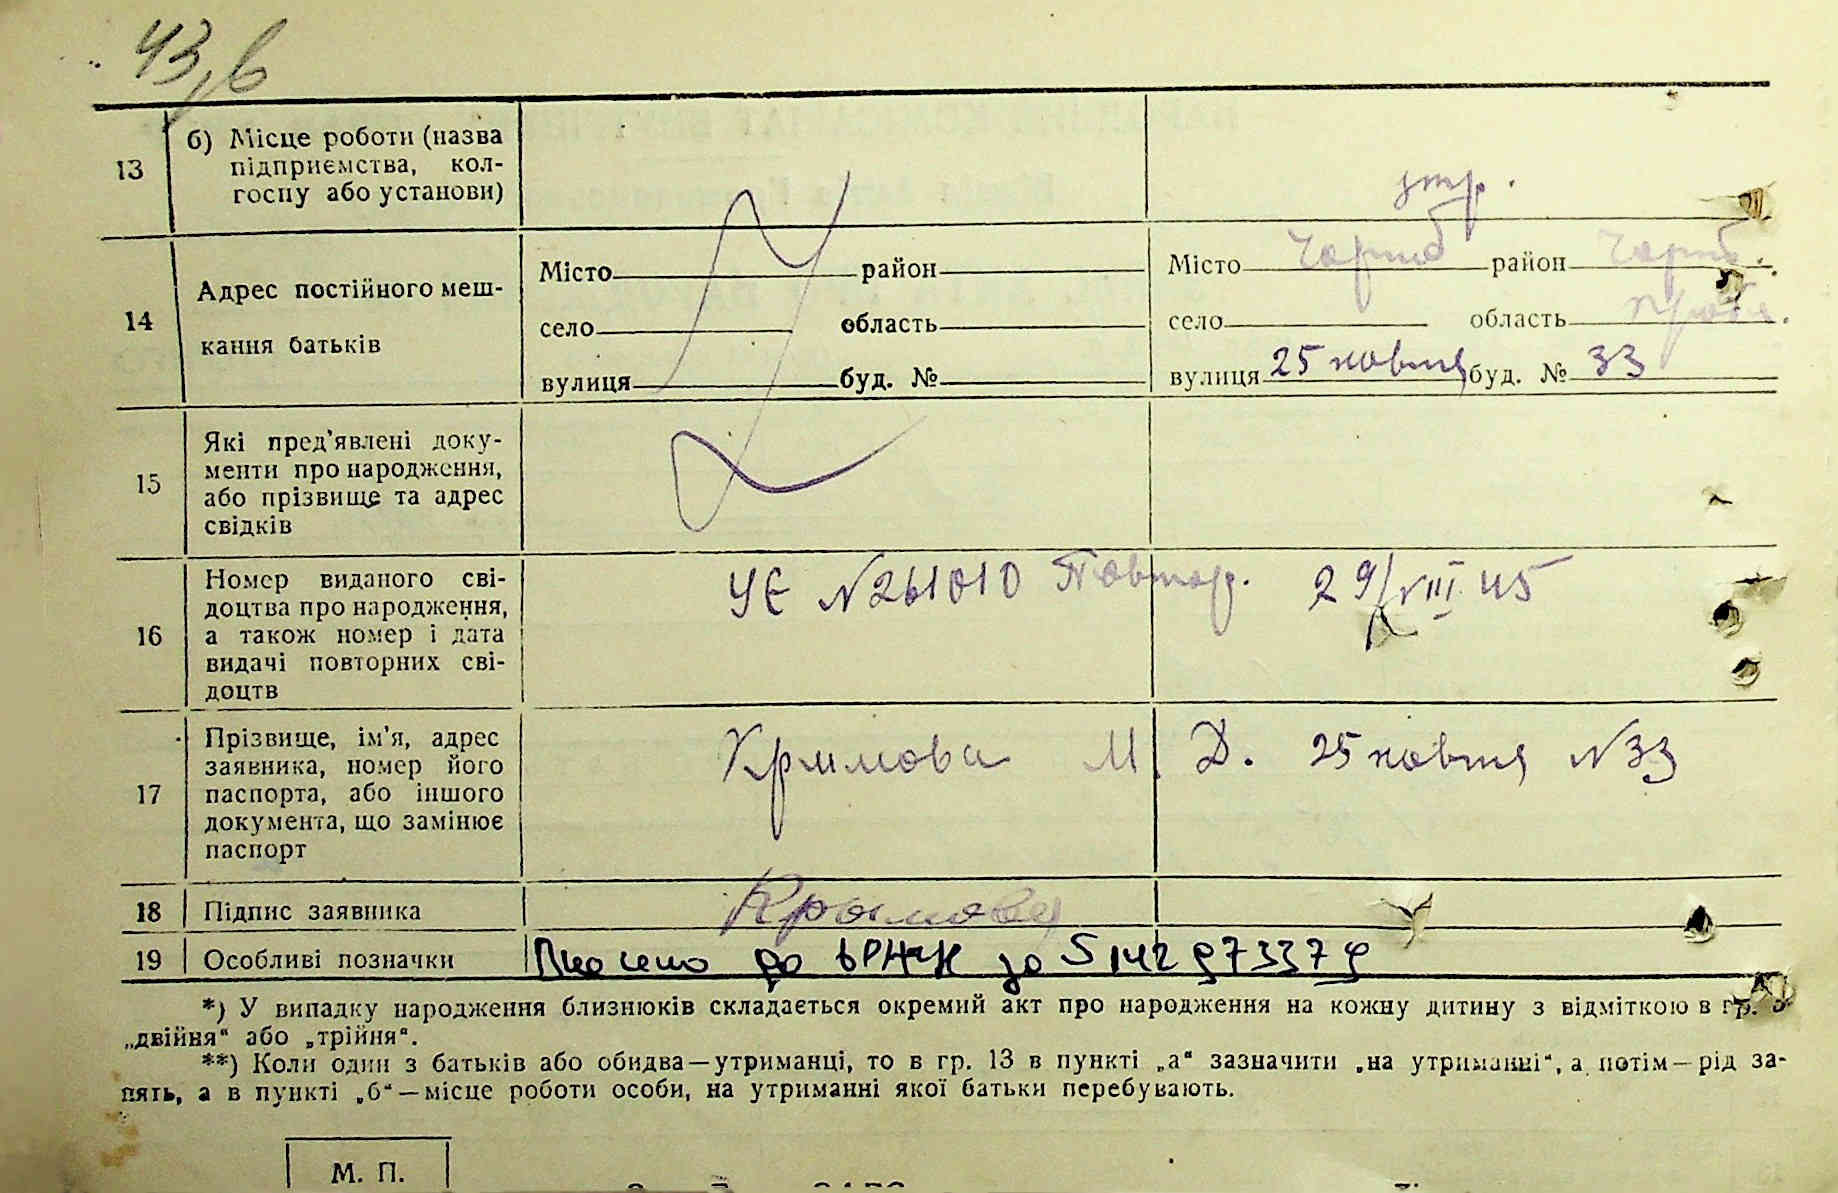 43,в
13
б) Місце роботи (назва
підприємства, кол-
госпу або установи)
утр.
14
Адрес постійного меш-
кання батьків
Місто район
село область
вулиця буд. №
Місто Чортк район Чортк.
село область
вулиця 25 жовтня буд. № 33
15
Які пред'явлені доку-
менти про народження,
або прізвище та адрес
свідків
16
Номер виданого сві-
доцтва про народження,
а також номер і дата
видачі повторних сві-
доцтв
УЄ N261010 Повтор. 29/VIII 45
17
Прізвище, ім'я, адрес
заявника, номер його
паспорта, або іншого
документа, що замінює
паспорт
Кримова М. Д. 25 жовтня N33
18 Підпис заявника
Крымова
19 Особливі позначки
Внесено до за 5142973379
*) У випадку народження близнюків складається окремий акт про народження на кожну дитину з відміткою в гр.
„двійня" або „трійня".
**) Коли один з батьків або обидва—утриманці, то в гр. 13 в пункті „а" зазначити „на утриманні", а потім—рід за-
нять, а в пункті „б"—місце роботи особи, на утриманні якої батьки перебувають.
М. П.